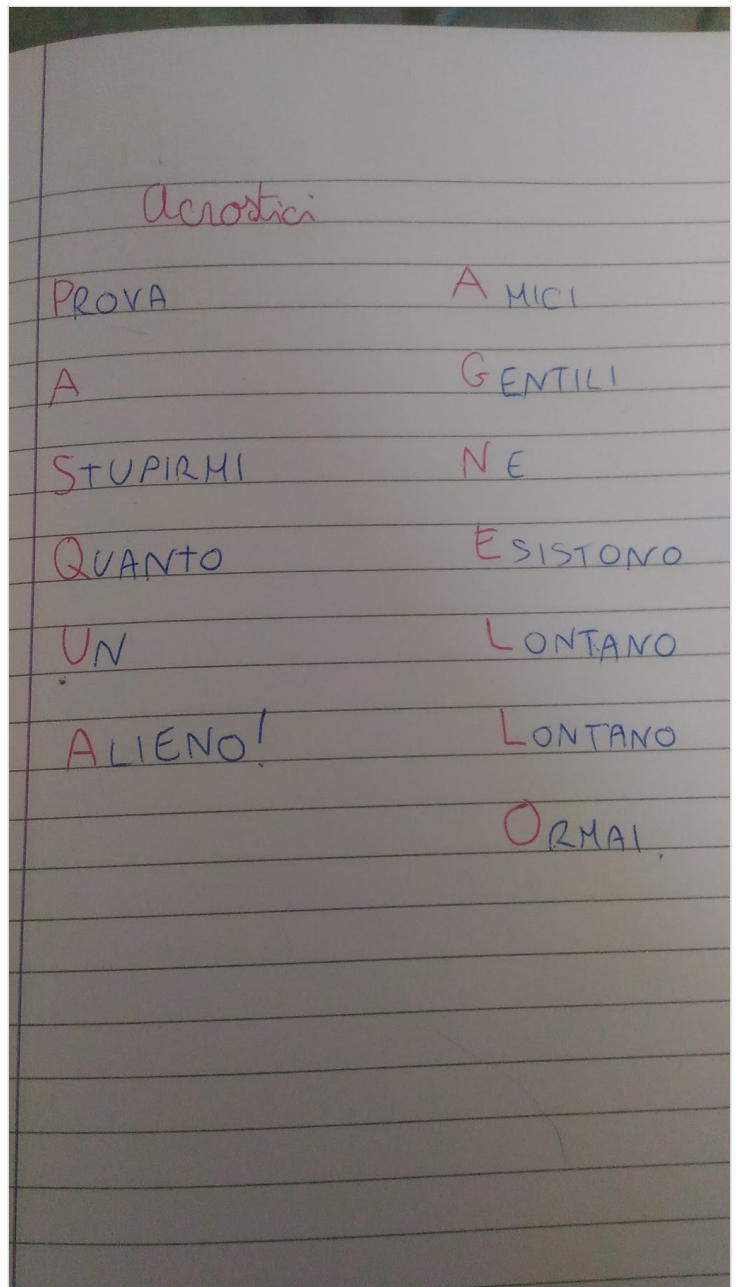 Acrostici
PROVA
A
STUPIRMI
QUANTO
UN
ALIENO!
AMICI
GENTILI
NE
ESISTONO
LONTANO
LONTANO
ORMAI.